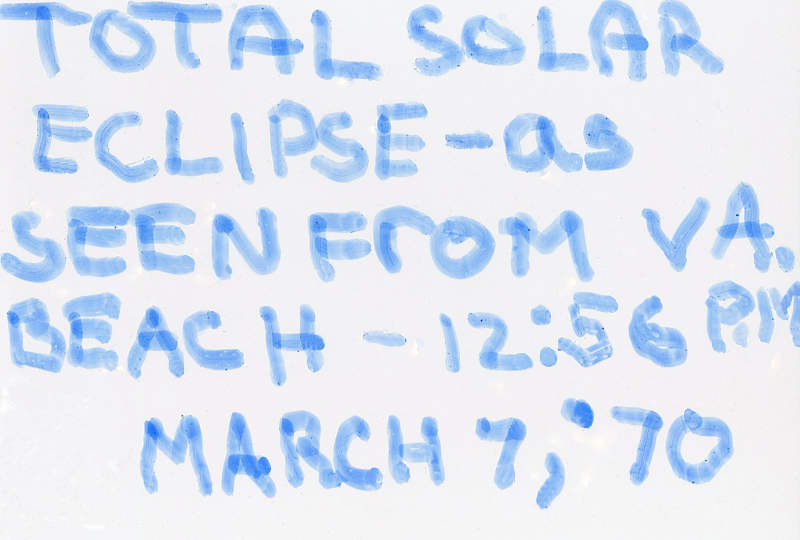 TOTAL SOLAR
ECLIPSE - as
SEEN FROM VA.
BEACH - 12:56 PM
MARCH 7, '70